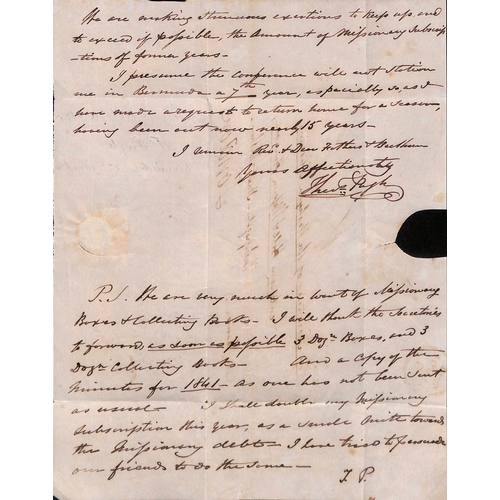 We are making strenuous exertions to keep up, and
to exceed if possible, the Amount of Missionary Subscrip
tions of former years—
I presume the conference will not station
me in Bermuda a 7th year, especially so, as I
have made a request to return home for a season,
having been out now nearly 15 years—
I remain Revd. & Dear Fathers & Brethren
Yours Affectionately
Theo. Pugh
P.S. We are very much in want of Missionary
Boxes & Collecting Books— I will thank the Secretaries
to forward as soon as possible 3 Dozn. Boxes, and 3
Dozn. Collecting Books— And a Copy of the
Minutes for 1841— as one has not been sent
as usual— I shall double my Missionary
Subscription this year, as a small mite towards
the Missionary debt— I have tried to persuade
our friends to do the same—
T. P.